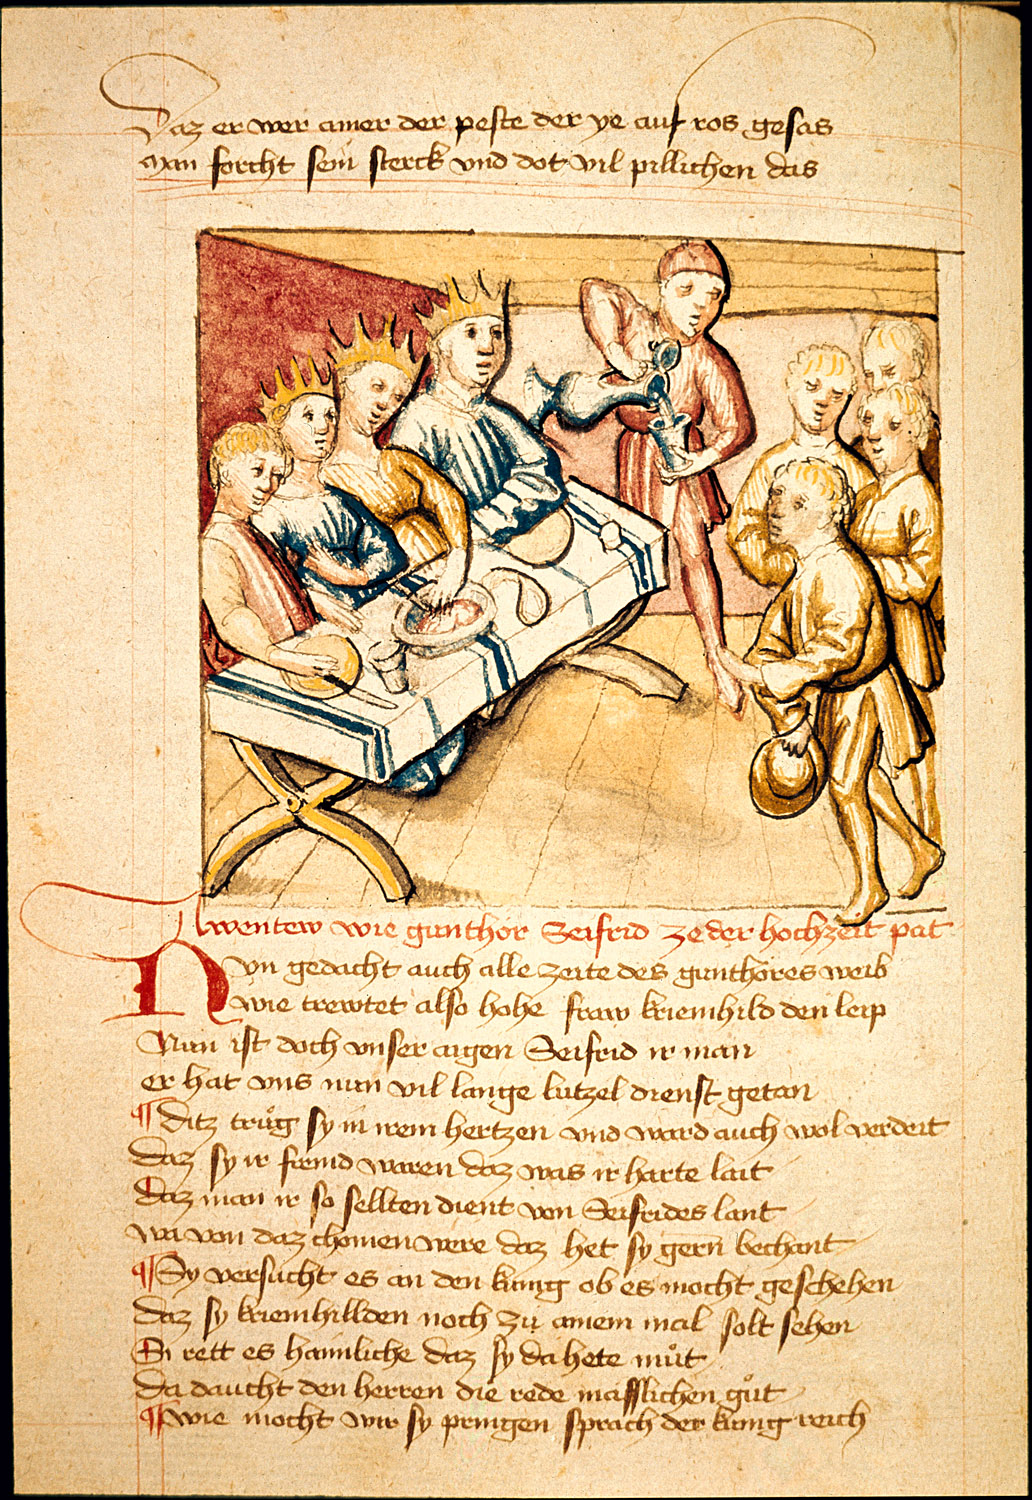 Daz er wer ainer der peste der ye auf ros gesas
man forcht sein sterck vnd dot vil pillichen das
Awentew wie gunthor Seifrid ze der hochzeit pat
Nvn gedacht auch alle zeite des gunthores weib
wie trewtet also hohe fraw kriemhild den leip
Nun ist doch vnser aigen Seifrid ir man
er hat vns nun vil lange lutzel dienst getan
¶ Ditz trůg sy in irem hertzen vnd ward auch wol verdeit
Daz sy ir fremd waren daz was ir harte lait
Daz man ir so sellten dient von Seifrides lant
wa von daz chomen were daz het sy gern bechant
¶ Sy versucht es an den kung ob es mocht geschehen
daz sy kriemhillden noch zu ainem mal solt sehen
Si rett es haimliche daz sy da hete můt
Da daucht den herren die rede mässlichen gůt
¶ wie mocht wir sy pringen sprach der kung reich